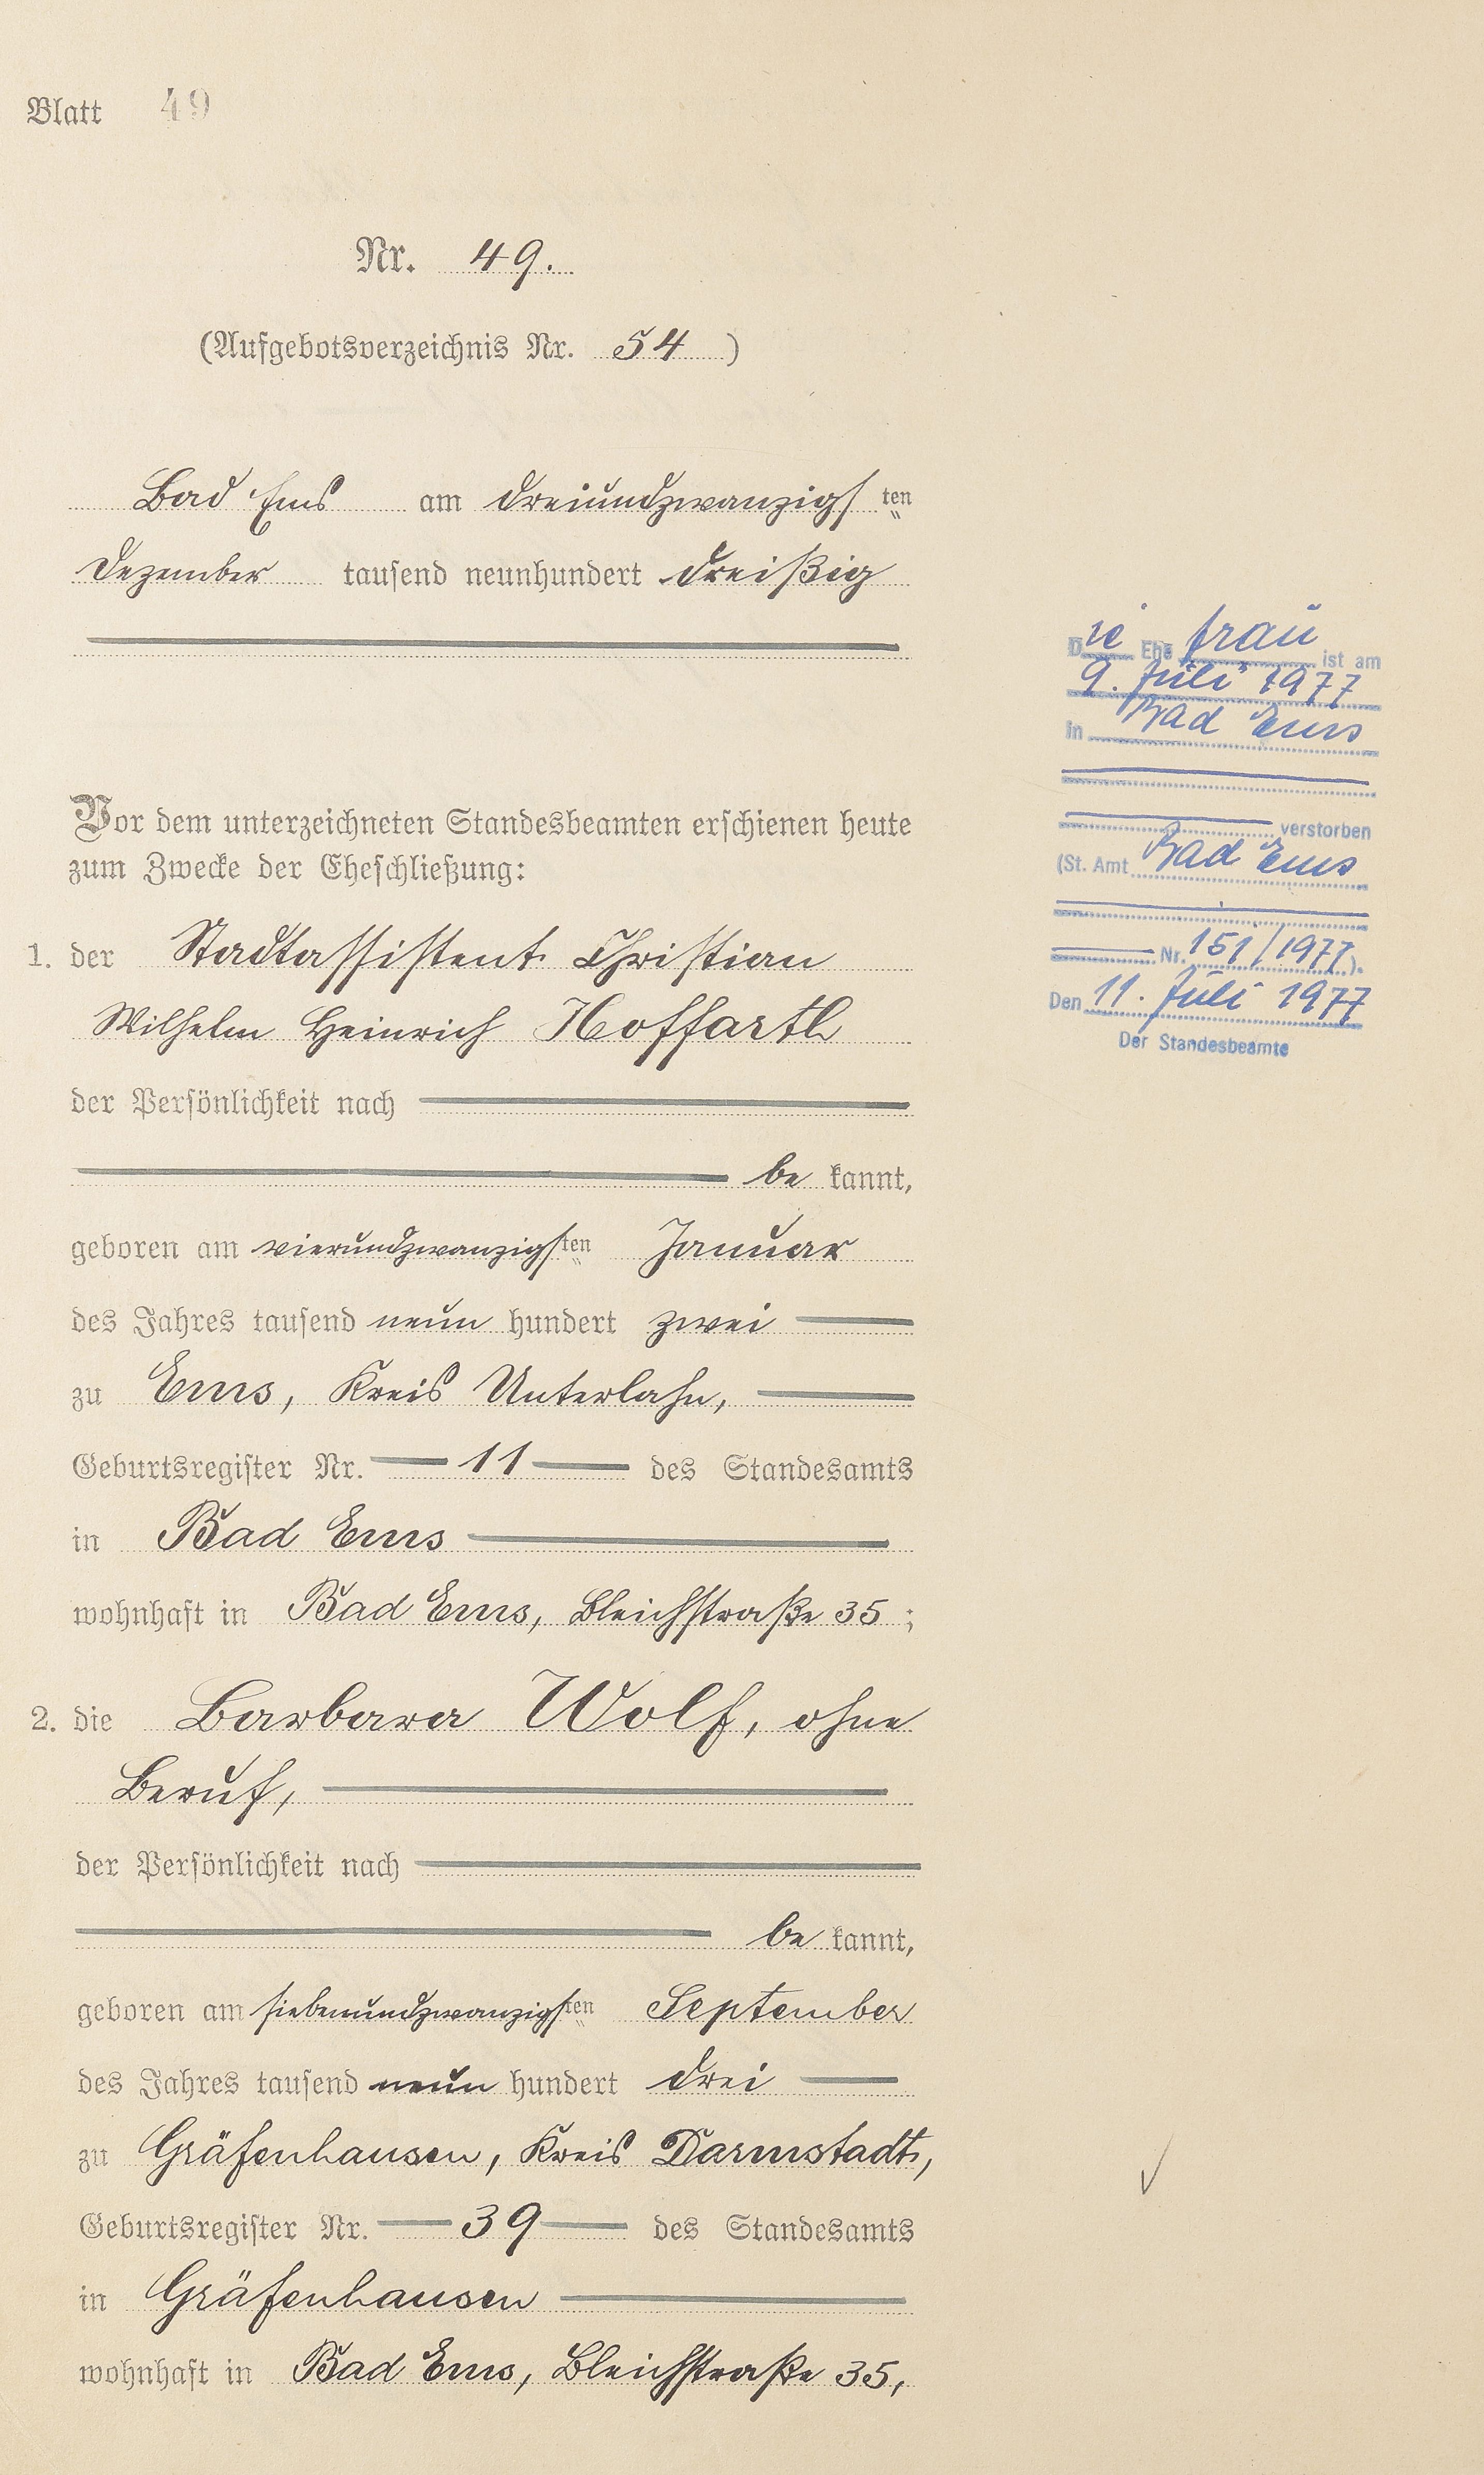 Blatt 49
Nr. 49.
(Aufgebotsverzeichnis Nr. 54)
Bad Ems am dreiundzwanzigsten
Dezember tausend neunhundert dreißig
Vor dem unterzeichneten Standesbeamten erschienen heute
zum Zwecke der Eheschließung:
1. der Stadtassistent Christian
Wilhelm Heinrich Hoffarth
der Persönlichkeit nach
be kannt,
geboren am vierundzwanzigsten Januar
des Jahres tausend neun hundert zwei
zu Ems, Kreis Unterlahn,
Geburtsregister Nr. 11 des Standesamts
in Bad Ems
wohnhaft in Bad Ems, Bleichstraße 35;
2. die Barbara Wolf, ohne
Beruf,
der Persönlichkeit nach
be kannt,
geboren am siebenundzwanzigsten September
des Jahres tausend neun hundert drei
zu Gräfenhausen, Kreis Darmstadt,
Geburtsregister Nr. 39 des Standesamts
in Gräfenhausen
wohnhaft in Bad Ems, Bleichstraße 35,
Die Ehefrau ist am
9. Juli 1977
in Bad Ems
verstorben
(St. Amt Bad Ems
Nr. 151/1977).
Den 11. Juli 1977
Der Standesbeamte